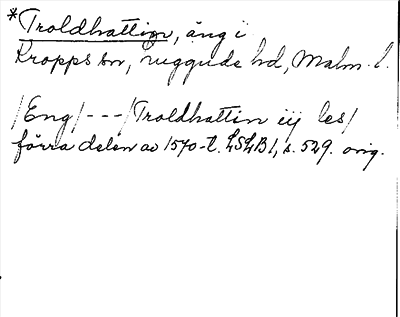 *Troldhattin, äng i
Kropps sn, Luggude hd, Malm. l.
/Eng/---/Troldhattin iij les/
förra delen av 1570-t. LSLB 1, s. 529. orig.